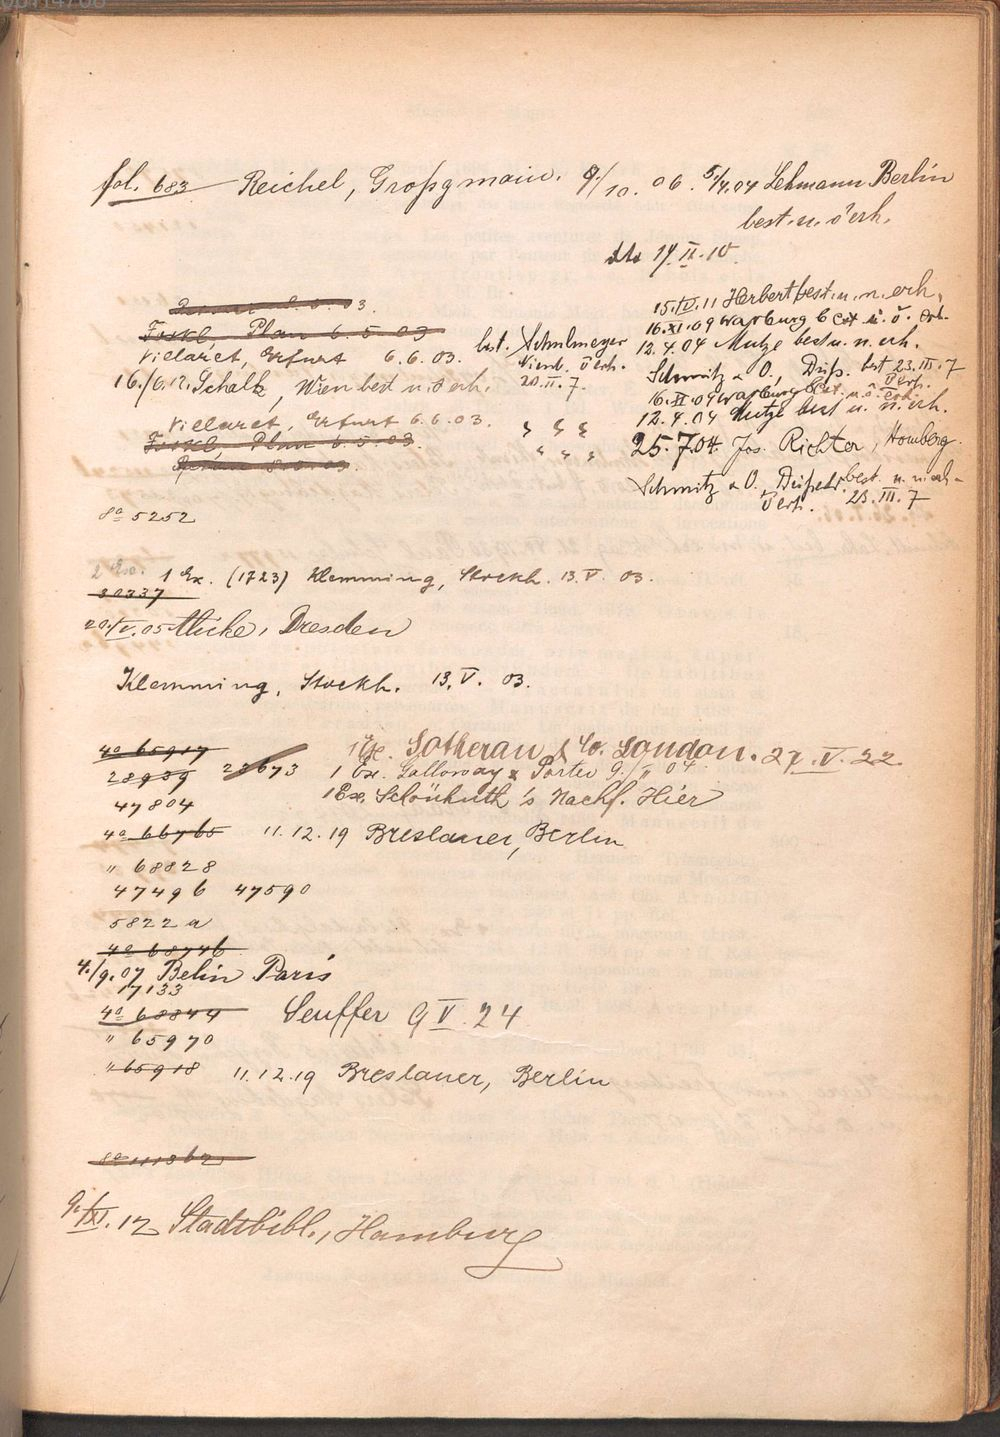 fol. 683 Reichel, Großgmain. 9/10. 06. 5/4.04 Lehmann Berlin
best. u. ö erh.
dto 14. II. 10.
03.
15. IV. 11 Herbert best. u. n. erh.
Foskl, Plan 6. 5 03
16. XI. 09 Warburg best u. ö. erh.
Villaret, Erfurt 6. 6. 03. best. Schulmeyer 12. 4. 04 Mutze best u. n. erh.
Nienb. ö erh.
Schmitz & O., Düss. best 23. III. 7
ö erh.
16./6.12. Schalk, Wien best u. ö erh. 20. II. 7.
16. XI. 09 Warburg best. u. ö. erh.
Villaret, Erfurt 6. 6. 03. " " " 12. 4. 04 Mutze best u. n. erh.
Foskl, Plan 6. 5 03. " " " 25. 7. 04. Jos. Richter, Homberg.
8. 6. 03.
Schmitz & O., best. u. n. erh.
ö erh. 23. III. 7
8º 5252
2 Ex. 1 Ex. (1723) Klemming, Stockh. 13. V. 03.
30337
20./V. 05 Thicke, Dresden
Klemming, Stockh. 13. V. 03.
4º 65917 1 Ex. Sotheran & Co. London. 27. V. 22.
28939 23673 1 Ex. Galloway & Porter 9./II 04.
47804 1 Ex. Schönhuth's Nachf. Hier
4º 66765 11. 12. 19 Breslauer, Berlin
" 68828
47496 47590
5822 a
4º 68746
4./9. 07 Belin Paris
17133
4º 68844 Seuffer 9 V. 24
" 65970
" 65918 11. 12. 19 Breslauer, Berlin
8º 111362
9./XI. 12 Stadtbibl., Hamburg